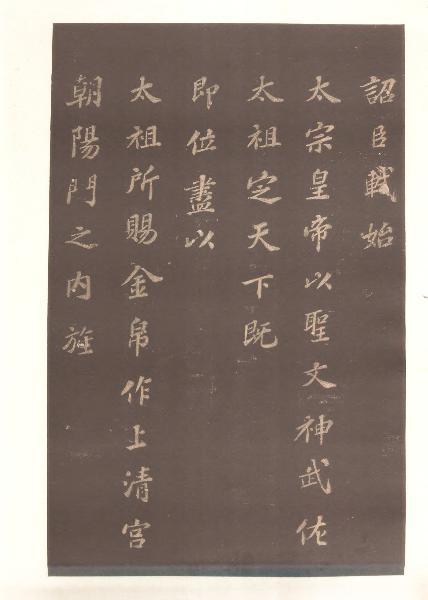 詔臣軾始
太宗皇帝以聖文神武佐
太祖定天下既
即位盡以
太祖所賜金帛作上清宮
朝陽門之内旌